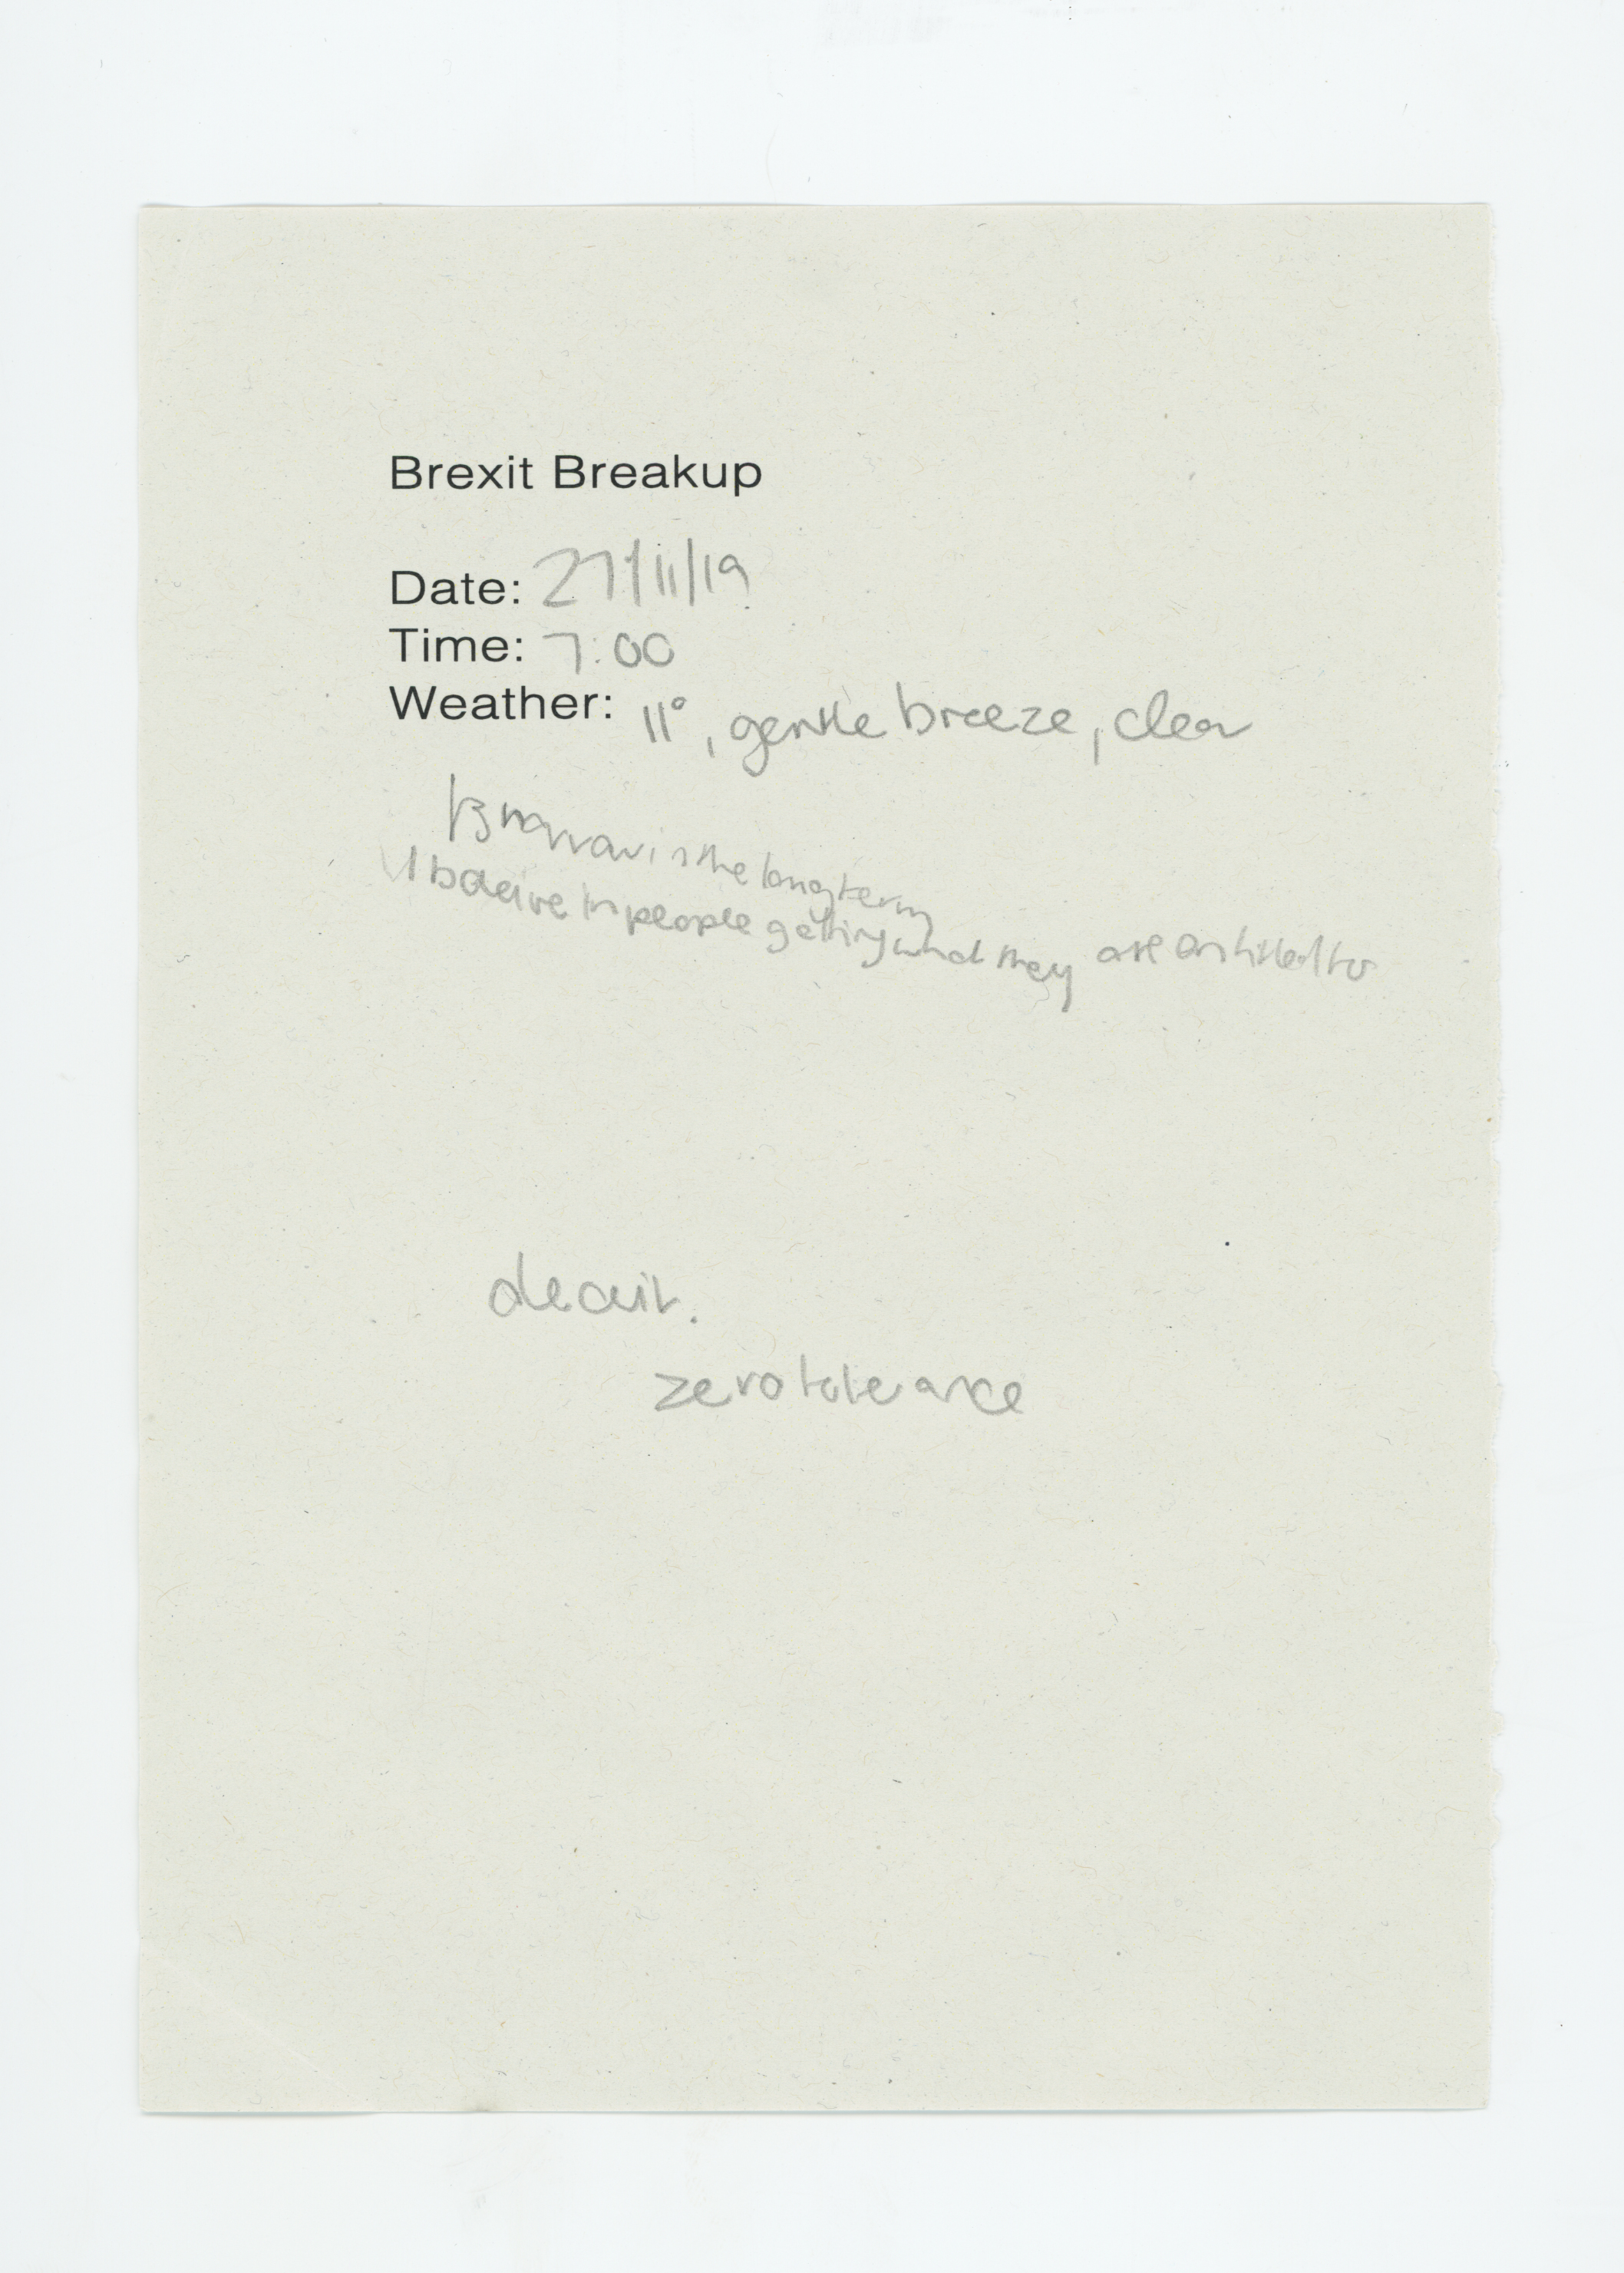 Brexit Breakup
Date: 27/11/19
Time: 7:00
Weather: 11°, gentle breeze, clear
is the long term
I believe in people getting what they are entitled to
deceit.
zero tolerance